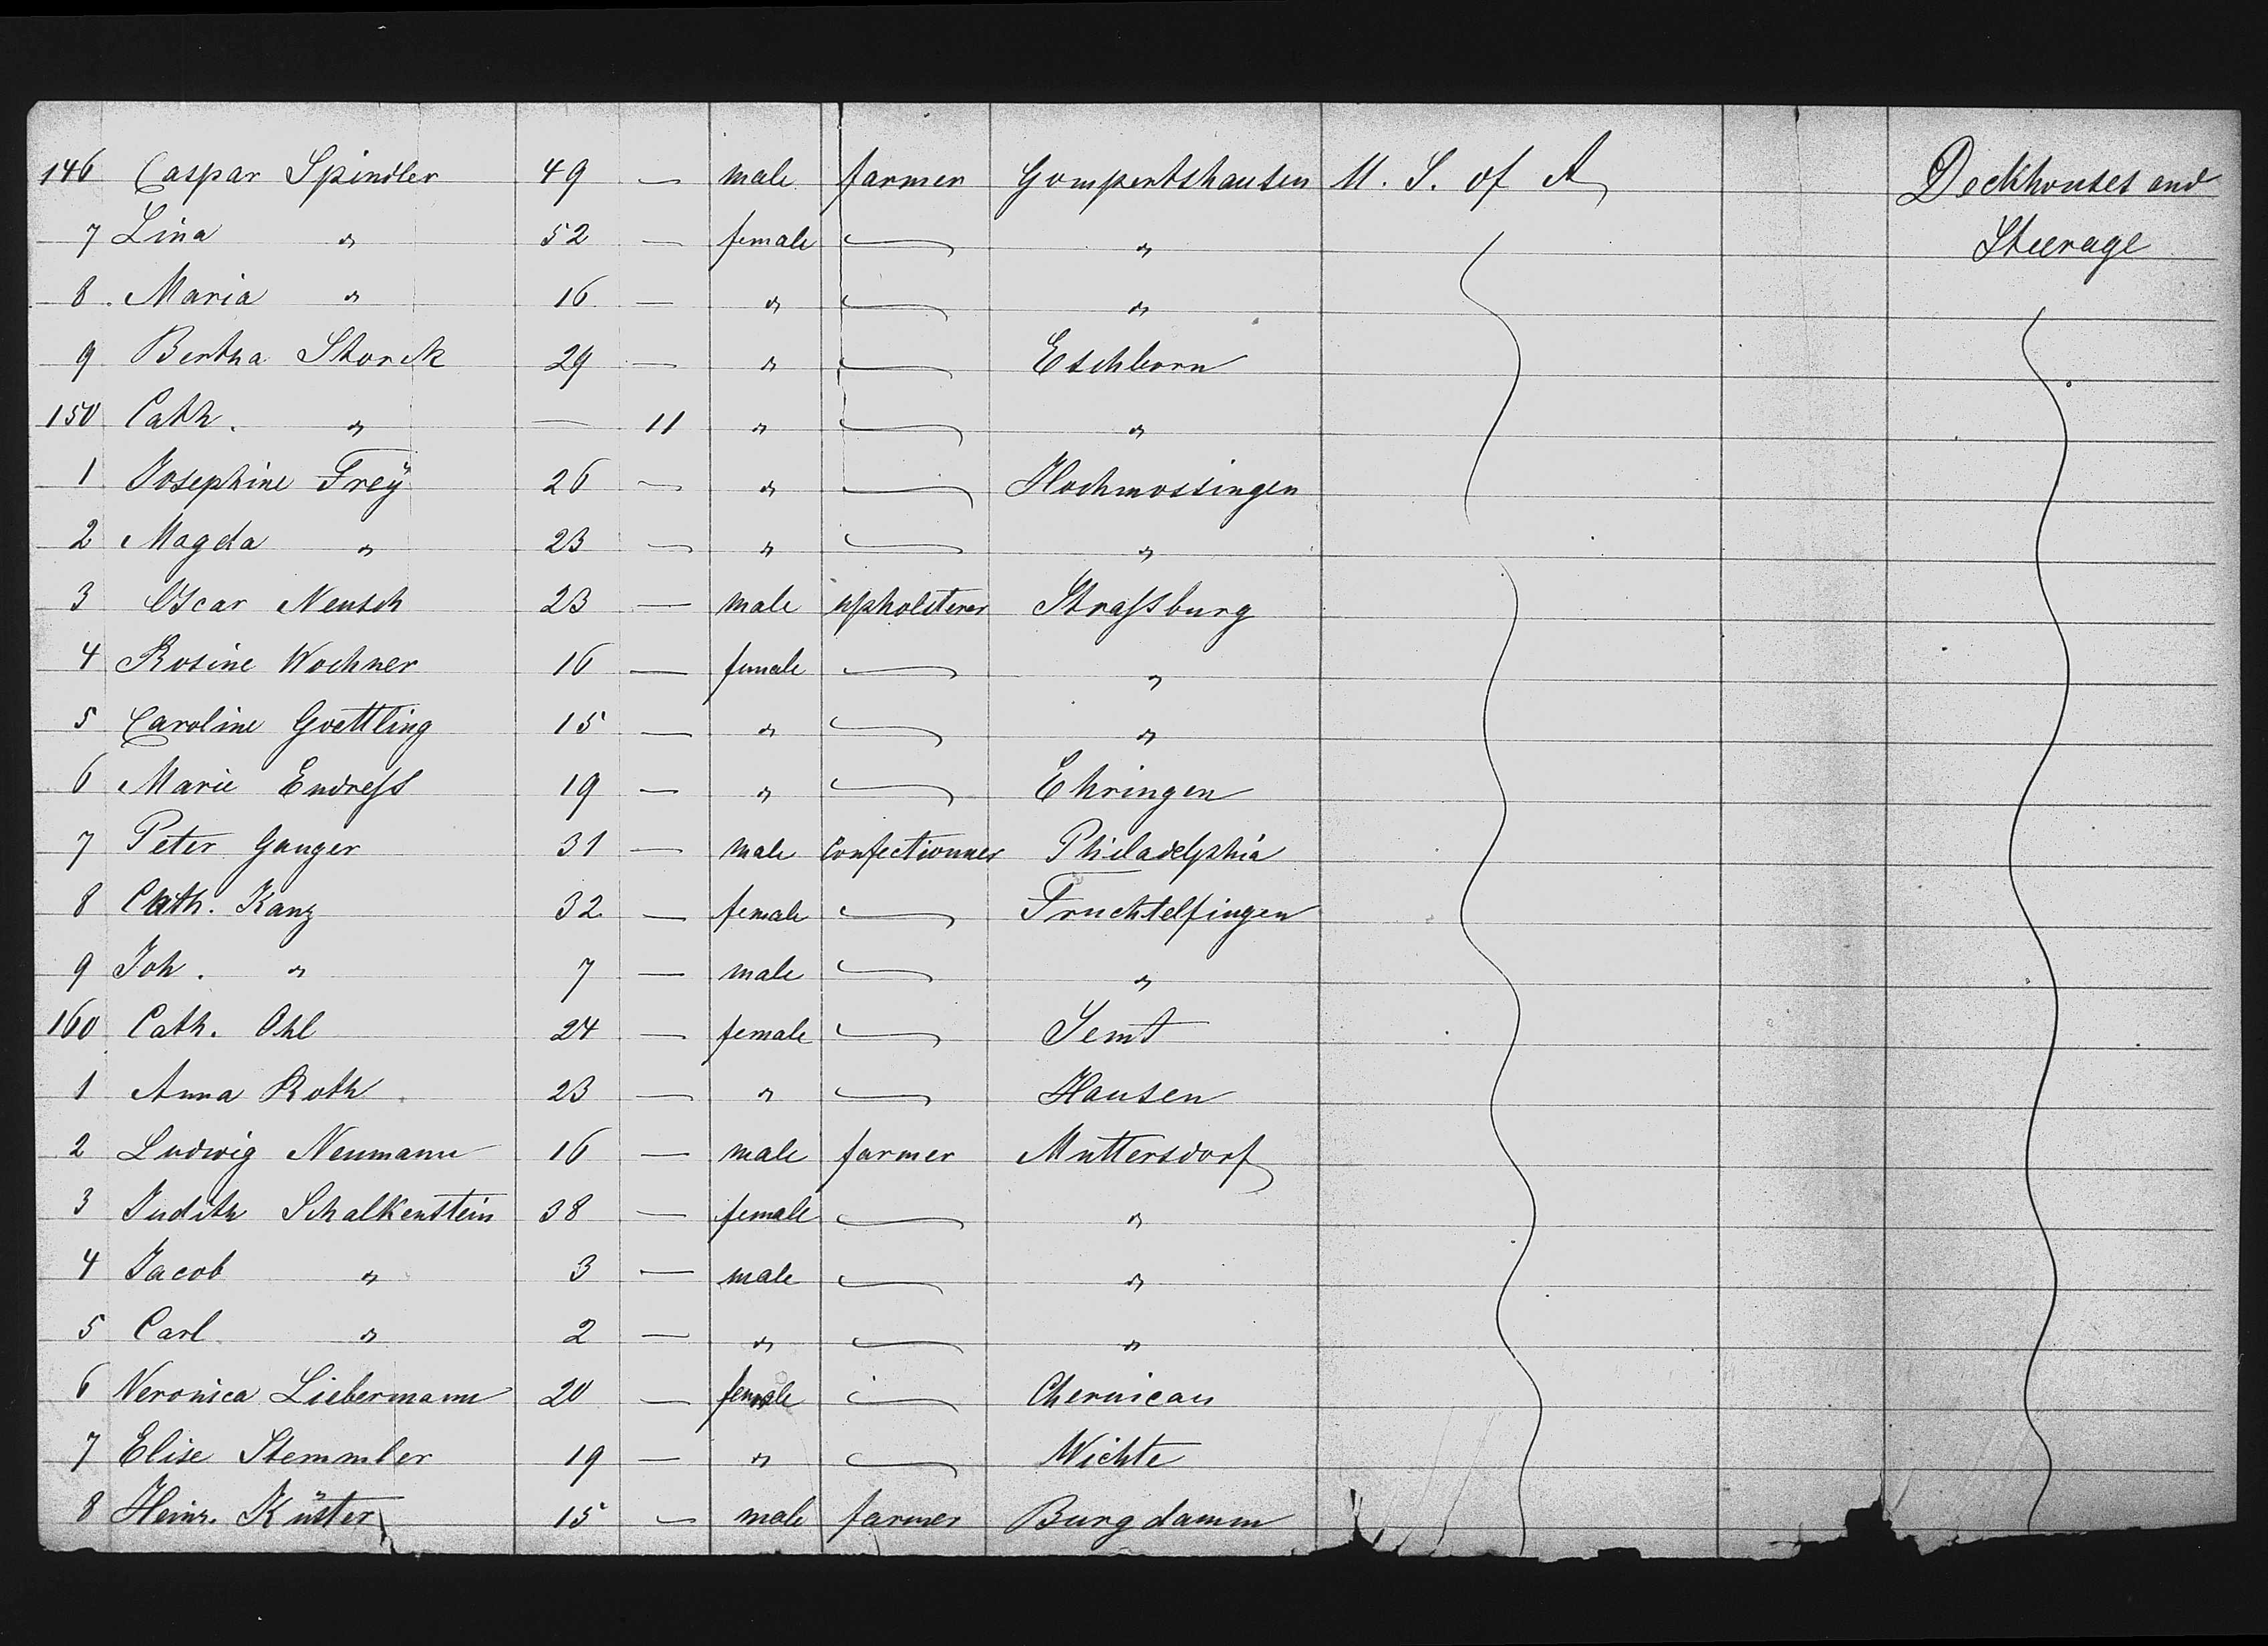 146 Caspar Spindler 49 — male farmer Gompertshausen U. S. of A Deckhouses and
7 Lina " 52 — female — " Steerage
8 Maria " 16 — " — "
9 Bertha Storck 29 — " — Eschborn
150 Cath. " — 11 " — "
1 Josephine Frey 26 — " — Hochmossingen
2 Magda " 23 — " — "
3 Oscar Neusch 23 — male upholsterer Strassburg
4 Rosine Wochner 16 — female — "
5 Caroline Goettling 15 — " — "
6 Marie Endress 19 — " — Ehringen
7 Peter Ganger 31 — male Confectionner Philadelphia
8 Cath. Kanz 32 — female — Truchtelfingen
9 Joh. " 7 — male — "
160 Cath. Ohl 24 — female — Semt
1 Anna Roth 23 — " — Hausen
2 Ludwig Neumann 16 — male farmer Muttersdorf
3 Judith Schalkenstein 38 — female — "
4 Jacob " 3 — male — "
5 Carl " 2 — " — "
6 Veronica Liebermann 20 — female — Chernicau
7 Elise Stemmler 19 — " — Wichte
8 Heinr. Küster 15 — male farmer Burgdamm